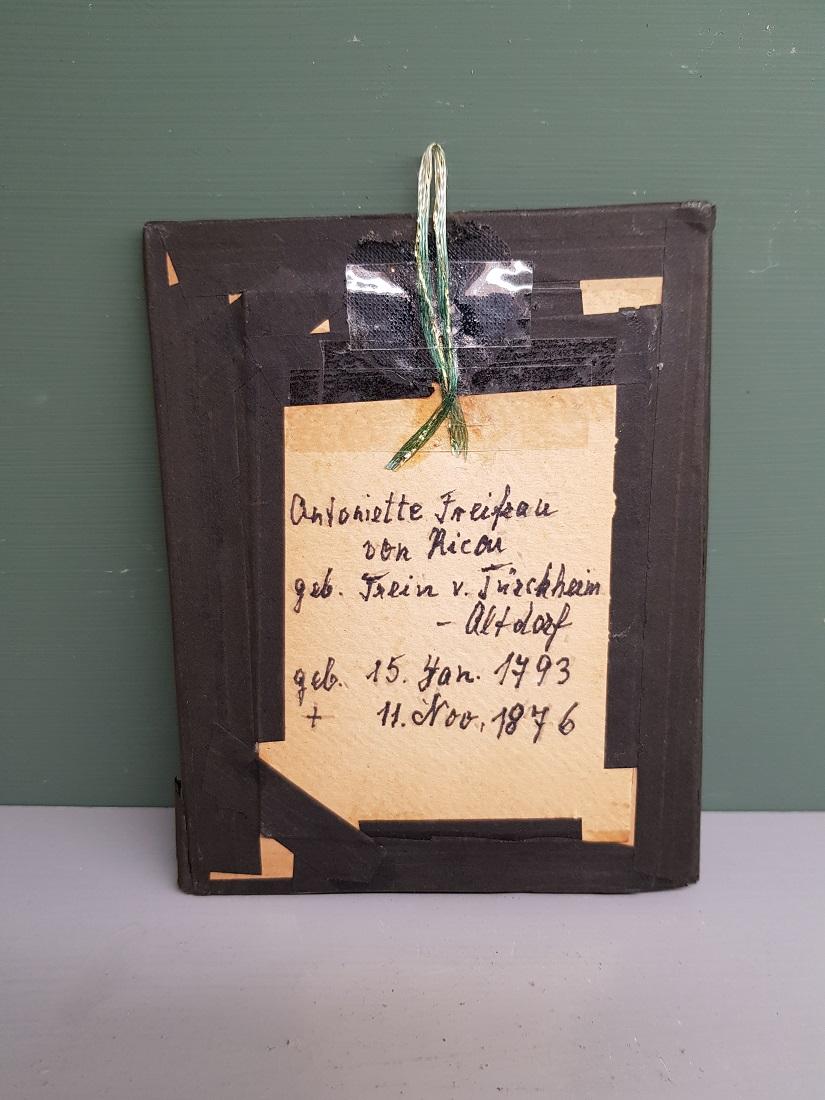 Antoniette Freifrau
von Ricou
geb. Frein v. Türckheim
- Altdorf
geb. 15. Jan. 1793
+ 11. Nov. 1876